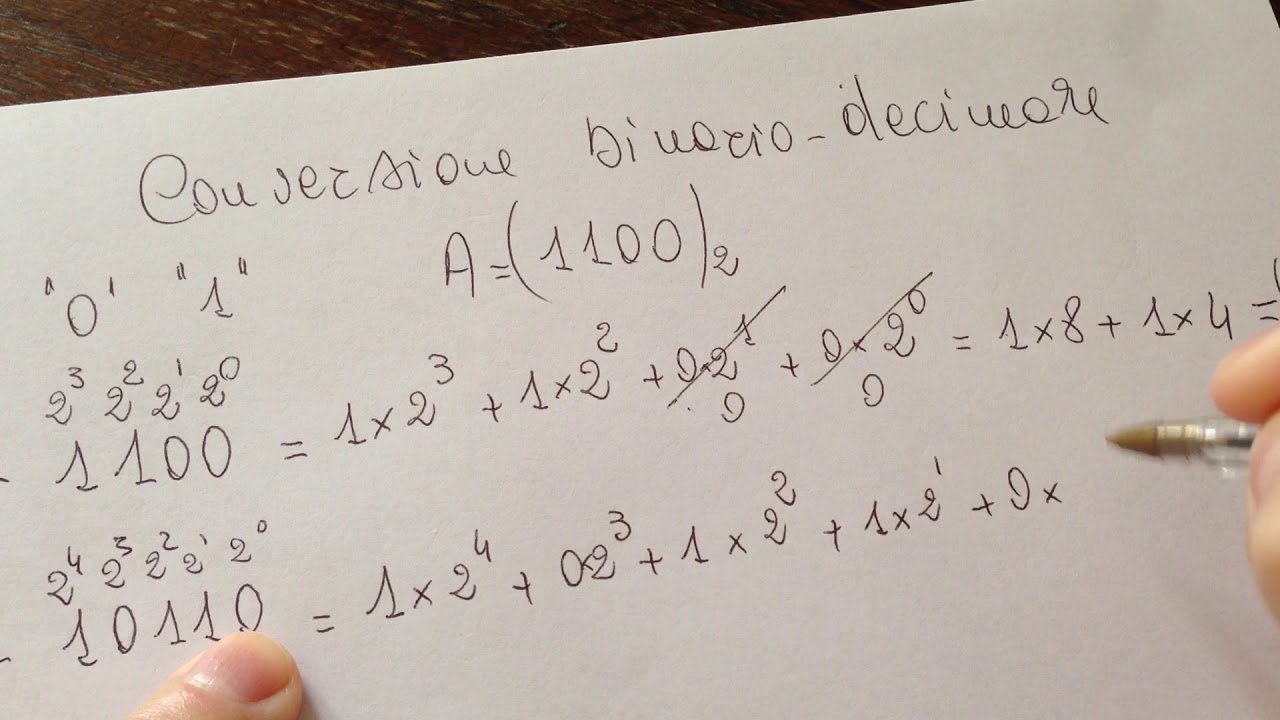 Conversione binario-decimale
A=(1100)₂
"0" "1"
2³ 2² 2¹ 2⁰
1100 = 1×2³ + 1×2² + 0×2¹ + 0×2⁰ = 1×8 + 1×4 =
0 0
2⁴ 2³ 2² 2¹ 2⁰
10110 = 1×2⁴ + 0×2³ + 1×2² + 1×2¹ + 0×